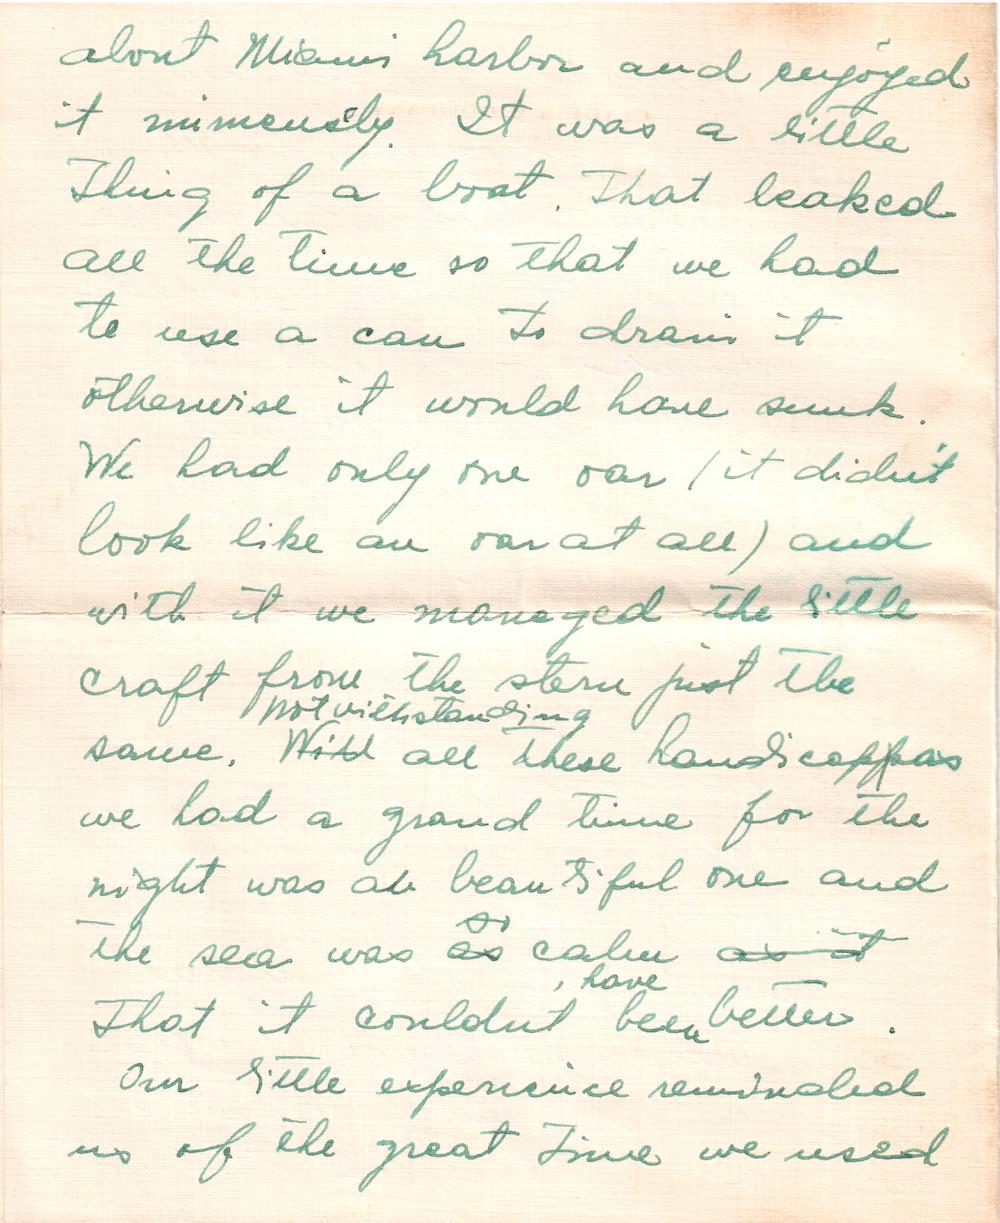 about Miami harbor and enjoyed
it immensely. It was a little
Thing of a boat. That leaked
all the time so that we had
to use a can to drain it
otherwise it would have sunk.
We had only one oar (it didn't
look like an oar at all) and
with it we managed the little
craft from the stern just the
notwithstanding
same. With all these handicappas
we had a grand time for the
night was a beautiful one and
so
the sea was as calm as it
, have
That it couldn't been better.
Our little experience reminded
us of the great Time we used